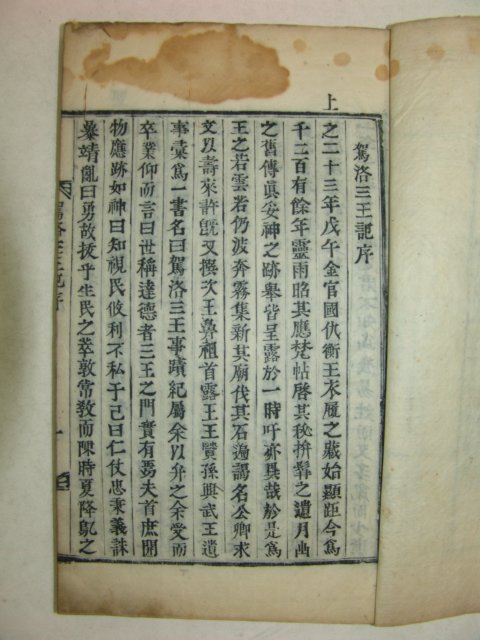 駕洛三王記序
上之二十三年戊午金官國仇衡王衣履之藏始顯距今爲
千二百有餘年靈雨昭其應梵帖啓其秘拚之遺月幽
之舊傳眞妥神之跡擧皆呈露於一時吁亦異哉於是爲
王之若雲若仍波奔霧集新其廟伐其石遍謁名公卿求
文以壽來許旣又撰次王鼻祖首露王王賢孫興武王遺
事彙爲一書名曰駕洛三王事蹟紀屬余以弁之余受而
卒業仰而言曰世稱達德者三王之門實有焉夫首庶開
物應跡如神曰知視民攸利不私于己曰仁仗忠秉義誅
暴靖亂曰勇故拔乎生民之萃敦常敎而陳時夏降之
駕洛三王記序 一